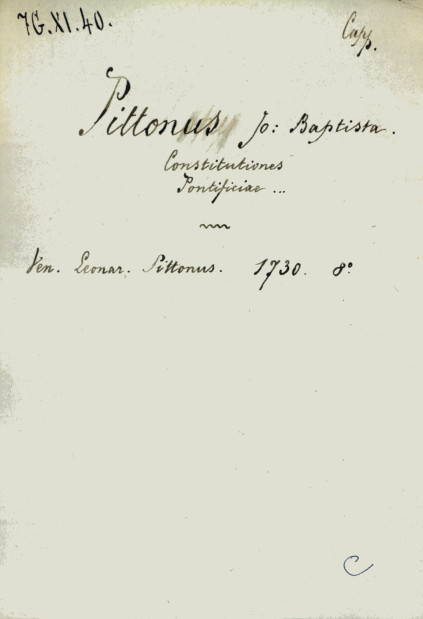 7G.XI.40.
Capp.
Pittonus Jo: Baptista.
Constitutiones
Pontificiae ...
Ven. Leonar. Pittonus. 1730. 8°
C